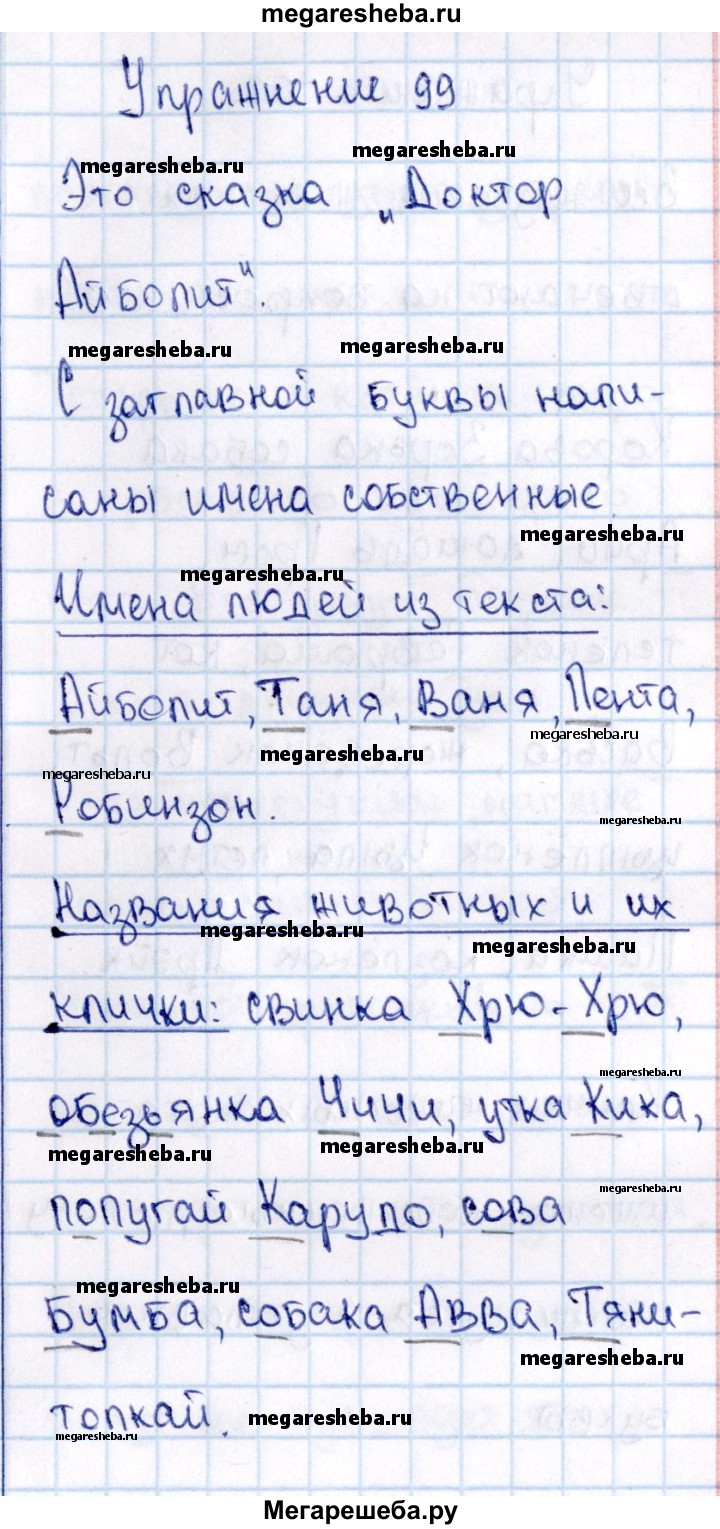 megaresheba.ru
Упражнение 99
megaresheba.ru
megaresheba.ru
Это сказка „Доктор
Айболит“.
megaresheba.ru
megaresheba.ru
С заглавной буквы напи-
саны имена собственные
megaresheba.ru
megaresheba.ru
Имена людей из текста:
Айболит, Таня, Ваня, Пента,
megaresheba.ru
megaresheba.ru
megaresheba.ru
Робинзон.
megaresheba.ru
Названия животных и их
megaresheba.ru
megaresheba.ru
клички: свинка Хрю-Хрю,
megaresheba.ru
обезьянка Чичи, утка Кика,
megaresheba.ru
megaresheba.ru
megaresheba.ru
попугай Карудо, сова
megaresheba.ru
Бумба, собака Авва, Тяни-
megaresheba.ru
толкай.
megaresheba.ru
megaresheba.ru
Мегарешеба.ру